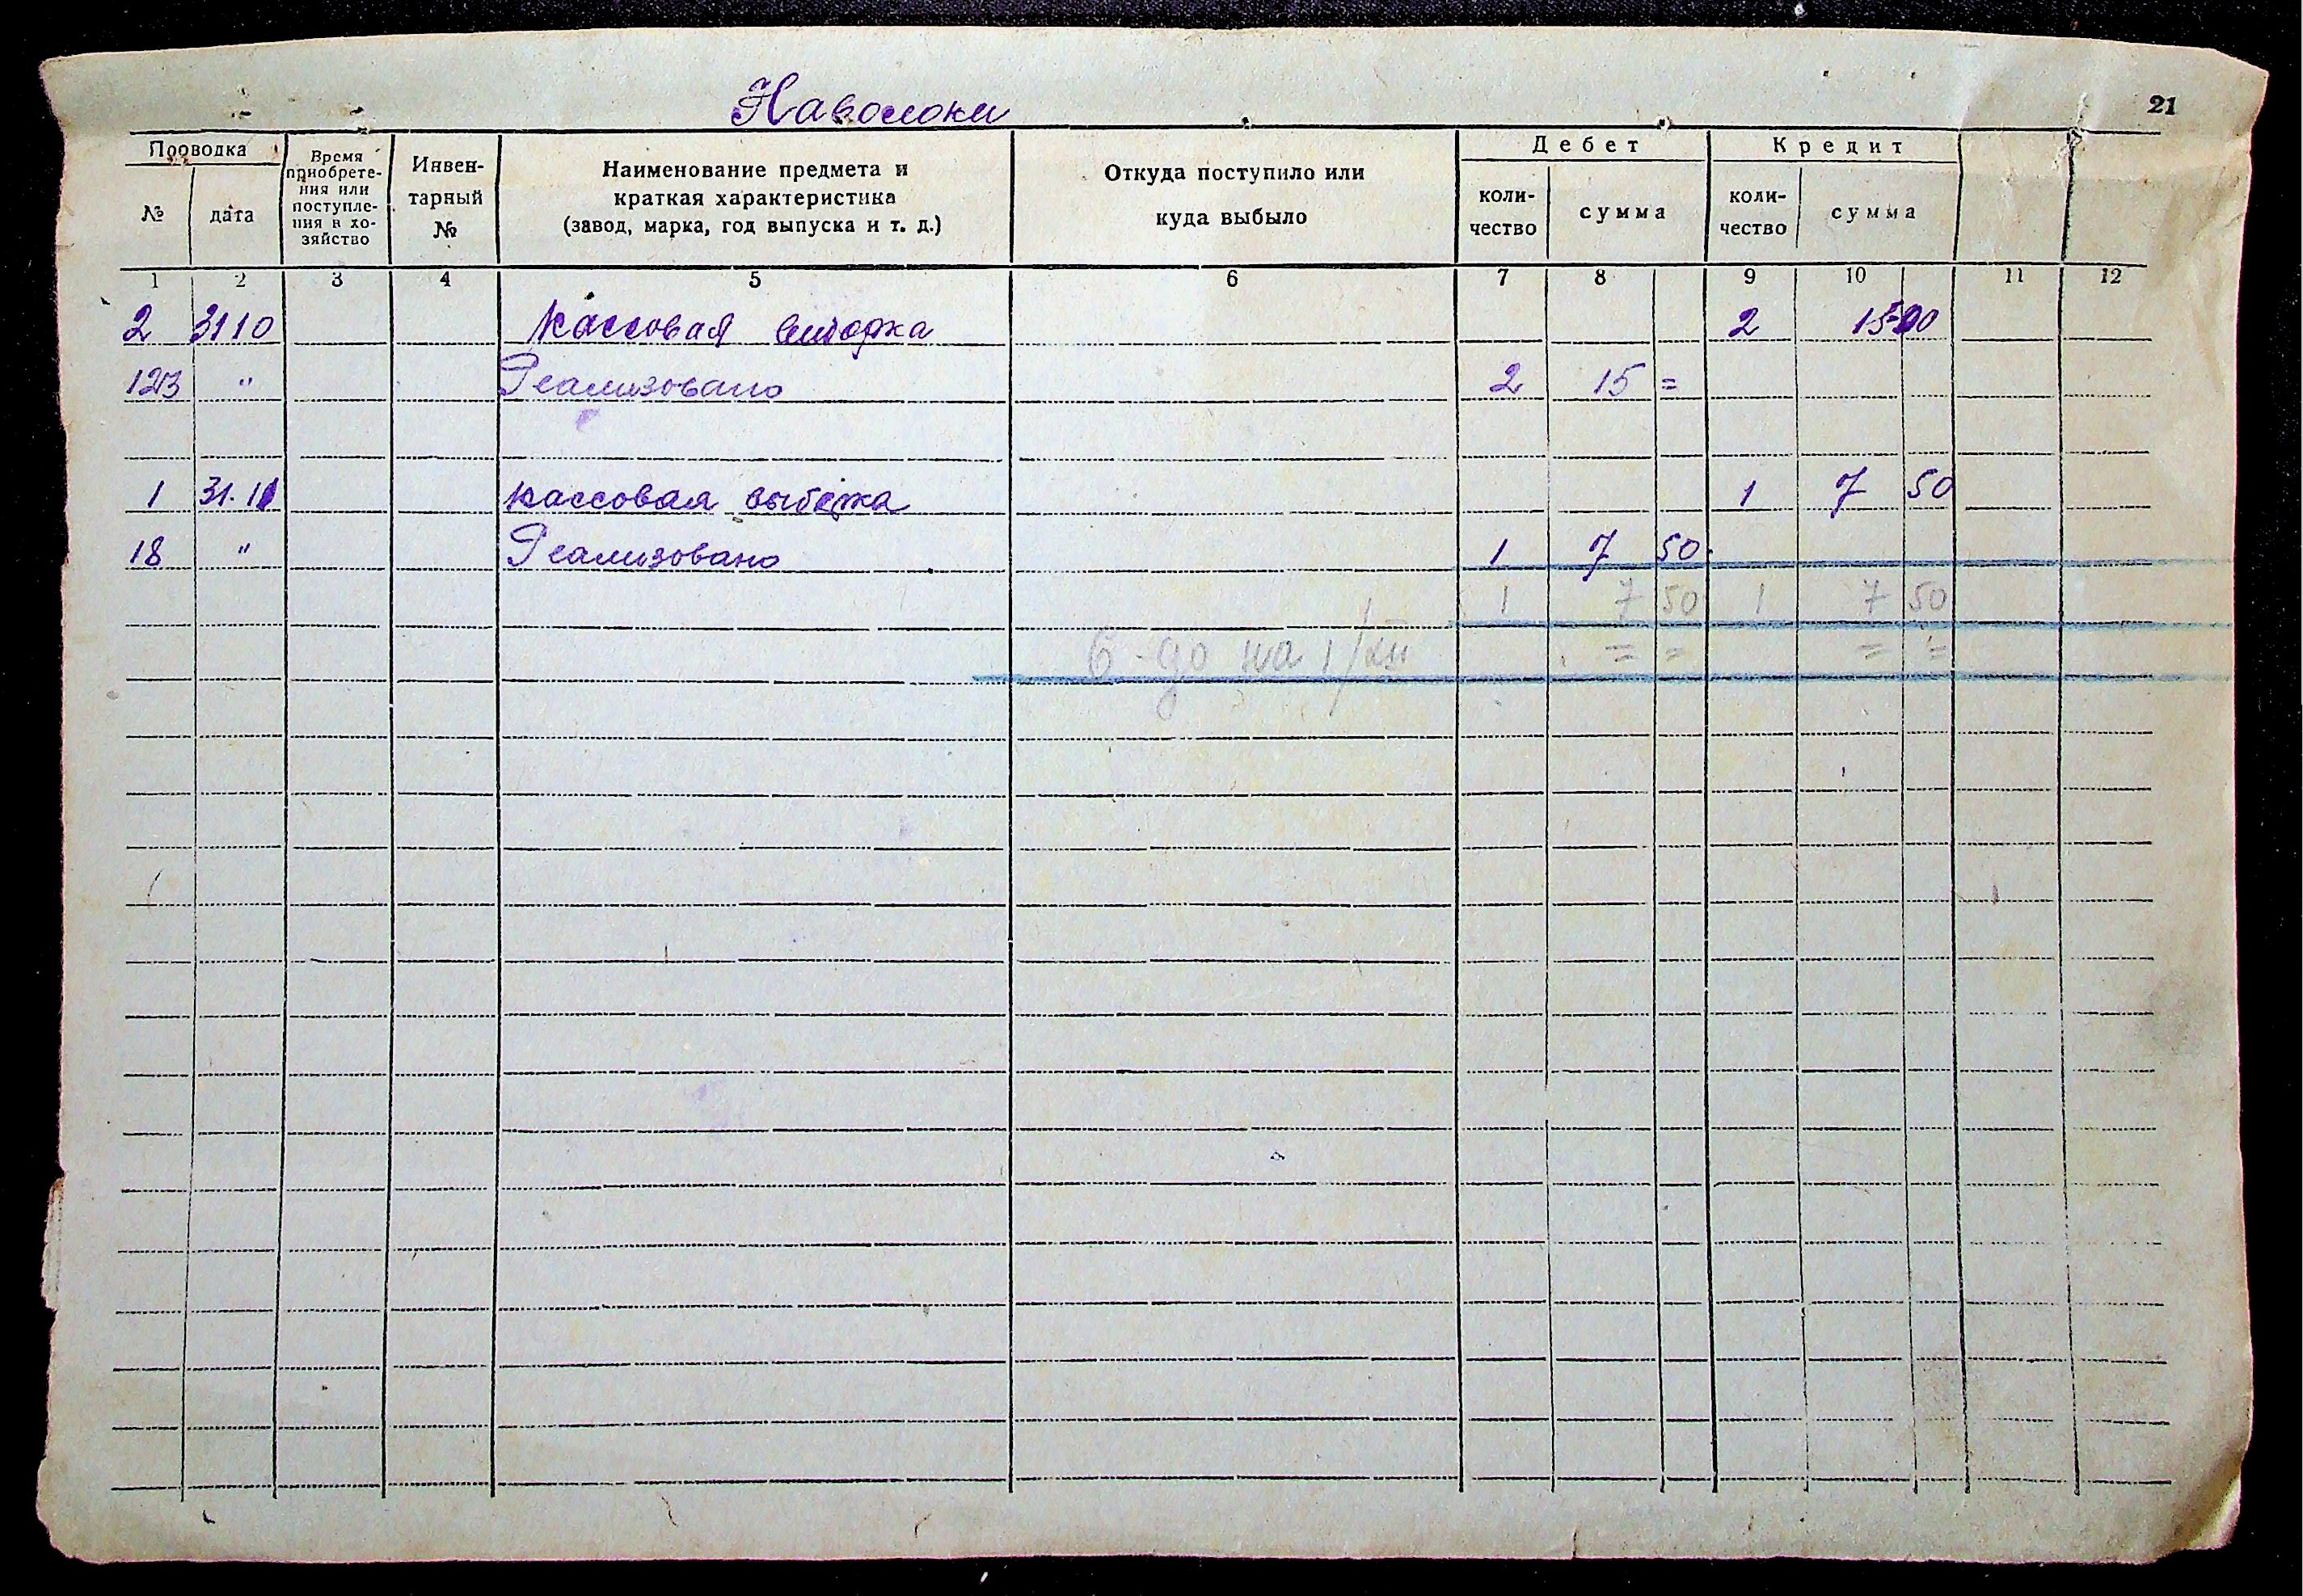 Наволоки
21
Проводка
Время приобретения или поступления в хозяйство
Инвентарный №
Наименование предмета и краткая характеристика (завод, марка, год выпуска и т. д.)
Откуда поступило или куда выбыло
Дебет
Кредит
№ дата количество сумма количество сумма
1 2 3 4 5 6 7 8 9 10 11 12
2 31 10 Кассовая выборка 2 15 00
" Реализовано 2 15 =
1 31.11 кассовая выборка 1 7 50
18 " Реализовано 1 7 50
1 7 50 1 7 50
С-до на 1/XII = = = =